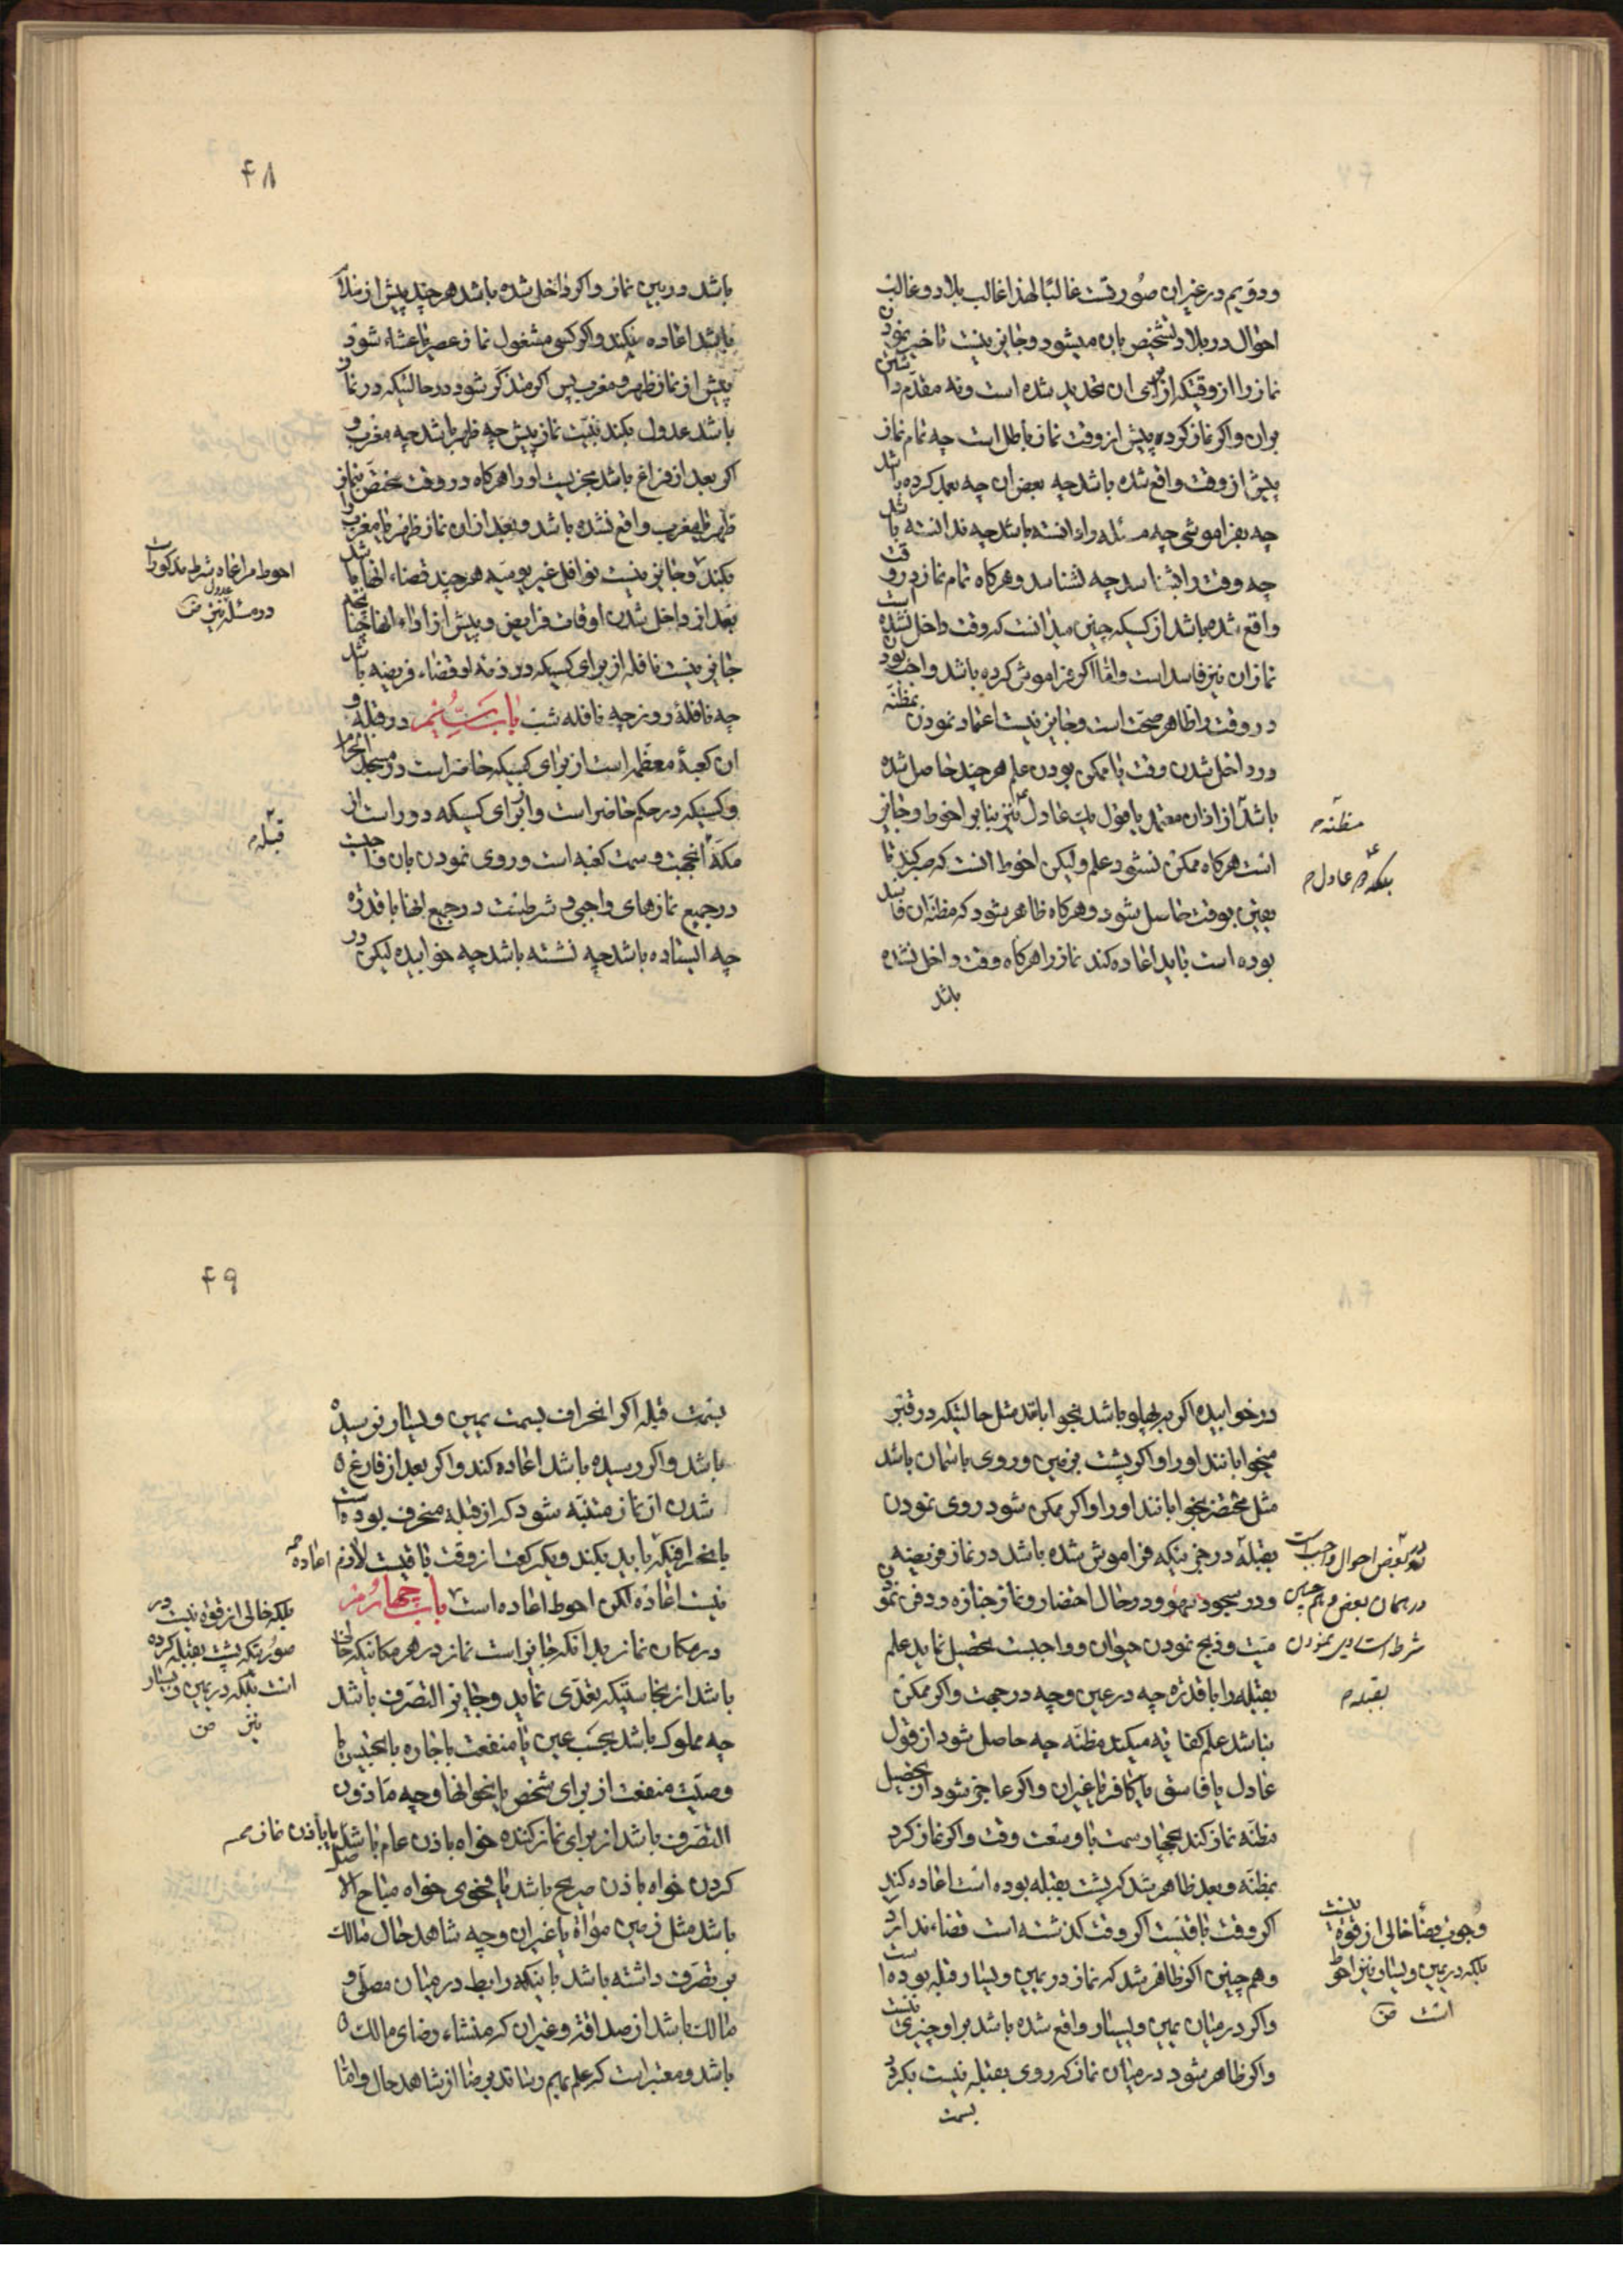 و دویم در غیر ان صورتست غالبًا لهذا غالب بلاد و غالب
احوال در بلاد تشخیص بان میشود و جایز نیست تاخیر نمودن
نماز را از وقتیکه از برای ان تحدید شده است و نه مقدم داشتن
بران و اکر نماز کرده پیش از وقت نماز باطل است چه تمام نماز
پیش از وقت واقع شده باشد چه بعض ان چه بعمد کرده باشد
چه بفراموشی چه مسئله را دانسته باشد چه ندانسته باشد
چه وقت را بشناسد چه نشناسد و هرکاه تمام نماز در وقت
واقع شده باشد از کسیکه چنین میدانست که وقت داخل نشده است
نماز ان نیز فاسد است و اما اکر فراموش کرده باشد واجب بودن
در وقت را ظاهر صحت است و جایز نیست اعتماد نمودن بمظنّه
در داخل شدن وقت با ممکن بودن علم هر چند حاصل شده
باشد از اذان معتمد یا قول یک عادل نیز بنا بر احوط و جایز
است هرکاه ممکن نشود علم ولیکن احوط انست که صبر کند تا
یقین بوقت حاصل شود و هرکاه ظاهر شود که مظنّه ان فاسد
بوده است باید اعاده کند نماز را هرکاه وقت داخل نشده
باشد
مظنّه
بلکه عادل
۴۸
باشد در بین نماز و اکر داخل شده باشد هر چند پیش از سلام
باشد اعاده نیکند و اکر کسی مشغول نماز عصر یا عشاء شود
پیش از نماز ظهر و مغرب پس اکر متذکر شود در حالتیکه در نماز
باشد عدول بکند بنیت نماز پیش چه ظهر باشد چه مغرب و
اکر بعد از فراغ باشد مجزیست او را هرکاه در وقت مختصّ بنماز
ظهر یا مغرب واقع نشده باشد و بعد از ان نماز ظهر یا مغرب را
بکند و جایز نیست نوافل غیر یومیّه هر چند قضاء انها باشد
بعد از داخل شدن اوقات فرایض و پیش از اداء انها چنانچه
جایز نیست نافله از برای کسیکه در ذمه او قضاء فریضه باشد
چه نافلهٔ روز چه نافله شب باب سیّم در قبله و
ان کعبهٔ معظّمه است از برای کسیکه حاضر است در مسجد الحرام
و کسیکه در حکم حاضر است و از برای کسیکه دور است از
مکّه انجهت و سمت کعبه است و روی نمودن بان واجبست
در جمیع نمازهای واجبی و شرطست در جمیع انها با قدرة
چه ایستاده باشد چه نشسته باشد چه خوابیده لیکن در
احوط مراعاه شرط مذکور است
در مسئله عدول نیز
قبله
۴۹
در خوابیده اکر بر پهلو باشد بخواباند مثل حالتیکه در قبر
میخوابانند او را و اکر پشت بزمین و روی باسمان باشد
مثل محتضر بخوابانند او را و اکر ممکن شود روی نمودن
بقبله در چیزیکه فراموش شده باشد در نماز فریضه
و در سجود سهو و در حال احتضار و نماز جنازه و دفن نمودن
میّت و ذبح نمودن حیوان و واجبست تحصیل نماید علم
بقبله را با قدرة چه در عین و چه در جهت و اکر ممکن
نباشد علم کفایه میکند مظنّه چه حاصل شود از قول
عادل یا فاسق یا کافر یا غیر ان و اکر عاجز شود از تحصیل
مظنّه نماز کند بچهار سمت با وسعت وقت و اکر نماز کرد
بمظنّه و بعد ظاهر شد که پشت بقبله بوده است اعاده کند
اکر وقت باقیست اکر وقت کذشته است قضاء ندارد
و هم چنین اکر ظاهر شد که نماز در یمین و یسار قبله بوده است
و اکر در میان یمین و یسار واقع شده باشد بر او چیزی نیست
و اکر ظاهر شود در میان نماز که روی بقبله نیست بکردد
بسمت
در بعض احوال واجب است
در همان بعض و هم چنین
شرط است در نمودن
بقبله
وجوب قضا خالی از قوة نیست
بلکه در یمین و یسار نیز احوط
است
بسمت قبله اکر انحراف بسمت یمین و یسار نرسیده
باشد و اکر رسیده باشد اعاده کند و اکر بعد از فارغ
شدن از نماز متنبّه شود که از قبله منحرف بوده است
بانحرافیکه باید بکند و یکرکعت از وقت باقیست لازم اعاده
نیست اعاده لکن احوط اعاده است باب چهارم
در مکان نماز بدانکه جایز است نماز در هر مکانیکه خالی
باشد از نجاستیکه تعدّی نماید و جایز التصرّف باشد
چه مملوک باشد بحسب عین یا منفعت باجاره یا بتحبیس یا
وصیّت منفعت از برای شخص یا نحو انها و چه مأذون
التصرّف باشد از برای نماز کننده خواه باذن عام باشد یا باذن خاص
کردن خواه باذن صریح باشد یا فحوی خواه مباح الاصل
باشد مثل زمین مواة یا غیر ان و چه شاهد حال مالک
بر تصرّف داشته باشد باینکه رابط در میان مصلّی و
مالک باشد از صداقة و غیر ان که منشاء رضای مالک
باشد و معتبر است که علم بهم رساند برضا از شاهد حال و اما
بلکه خالی از قوه نیست در
صورتیکه پشت بقبله کرده
است بلکه در یمین و یسار
نیز